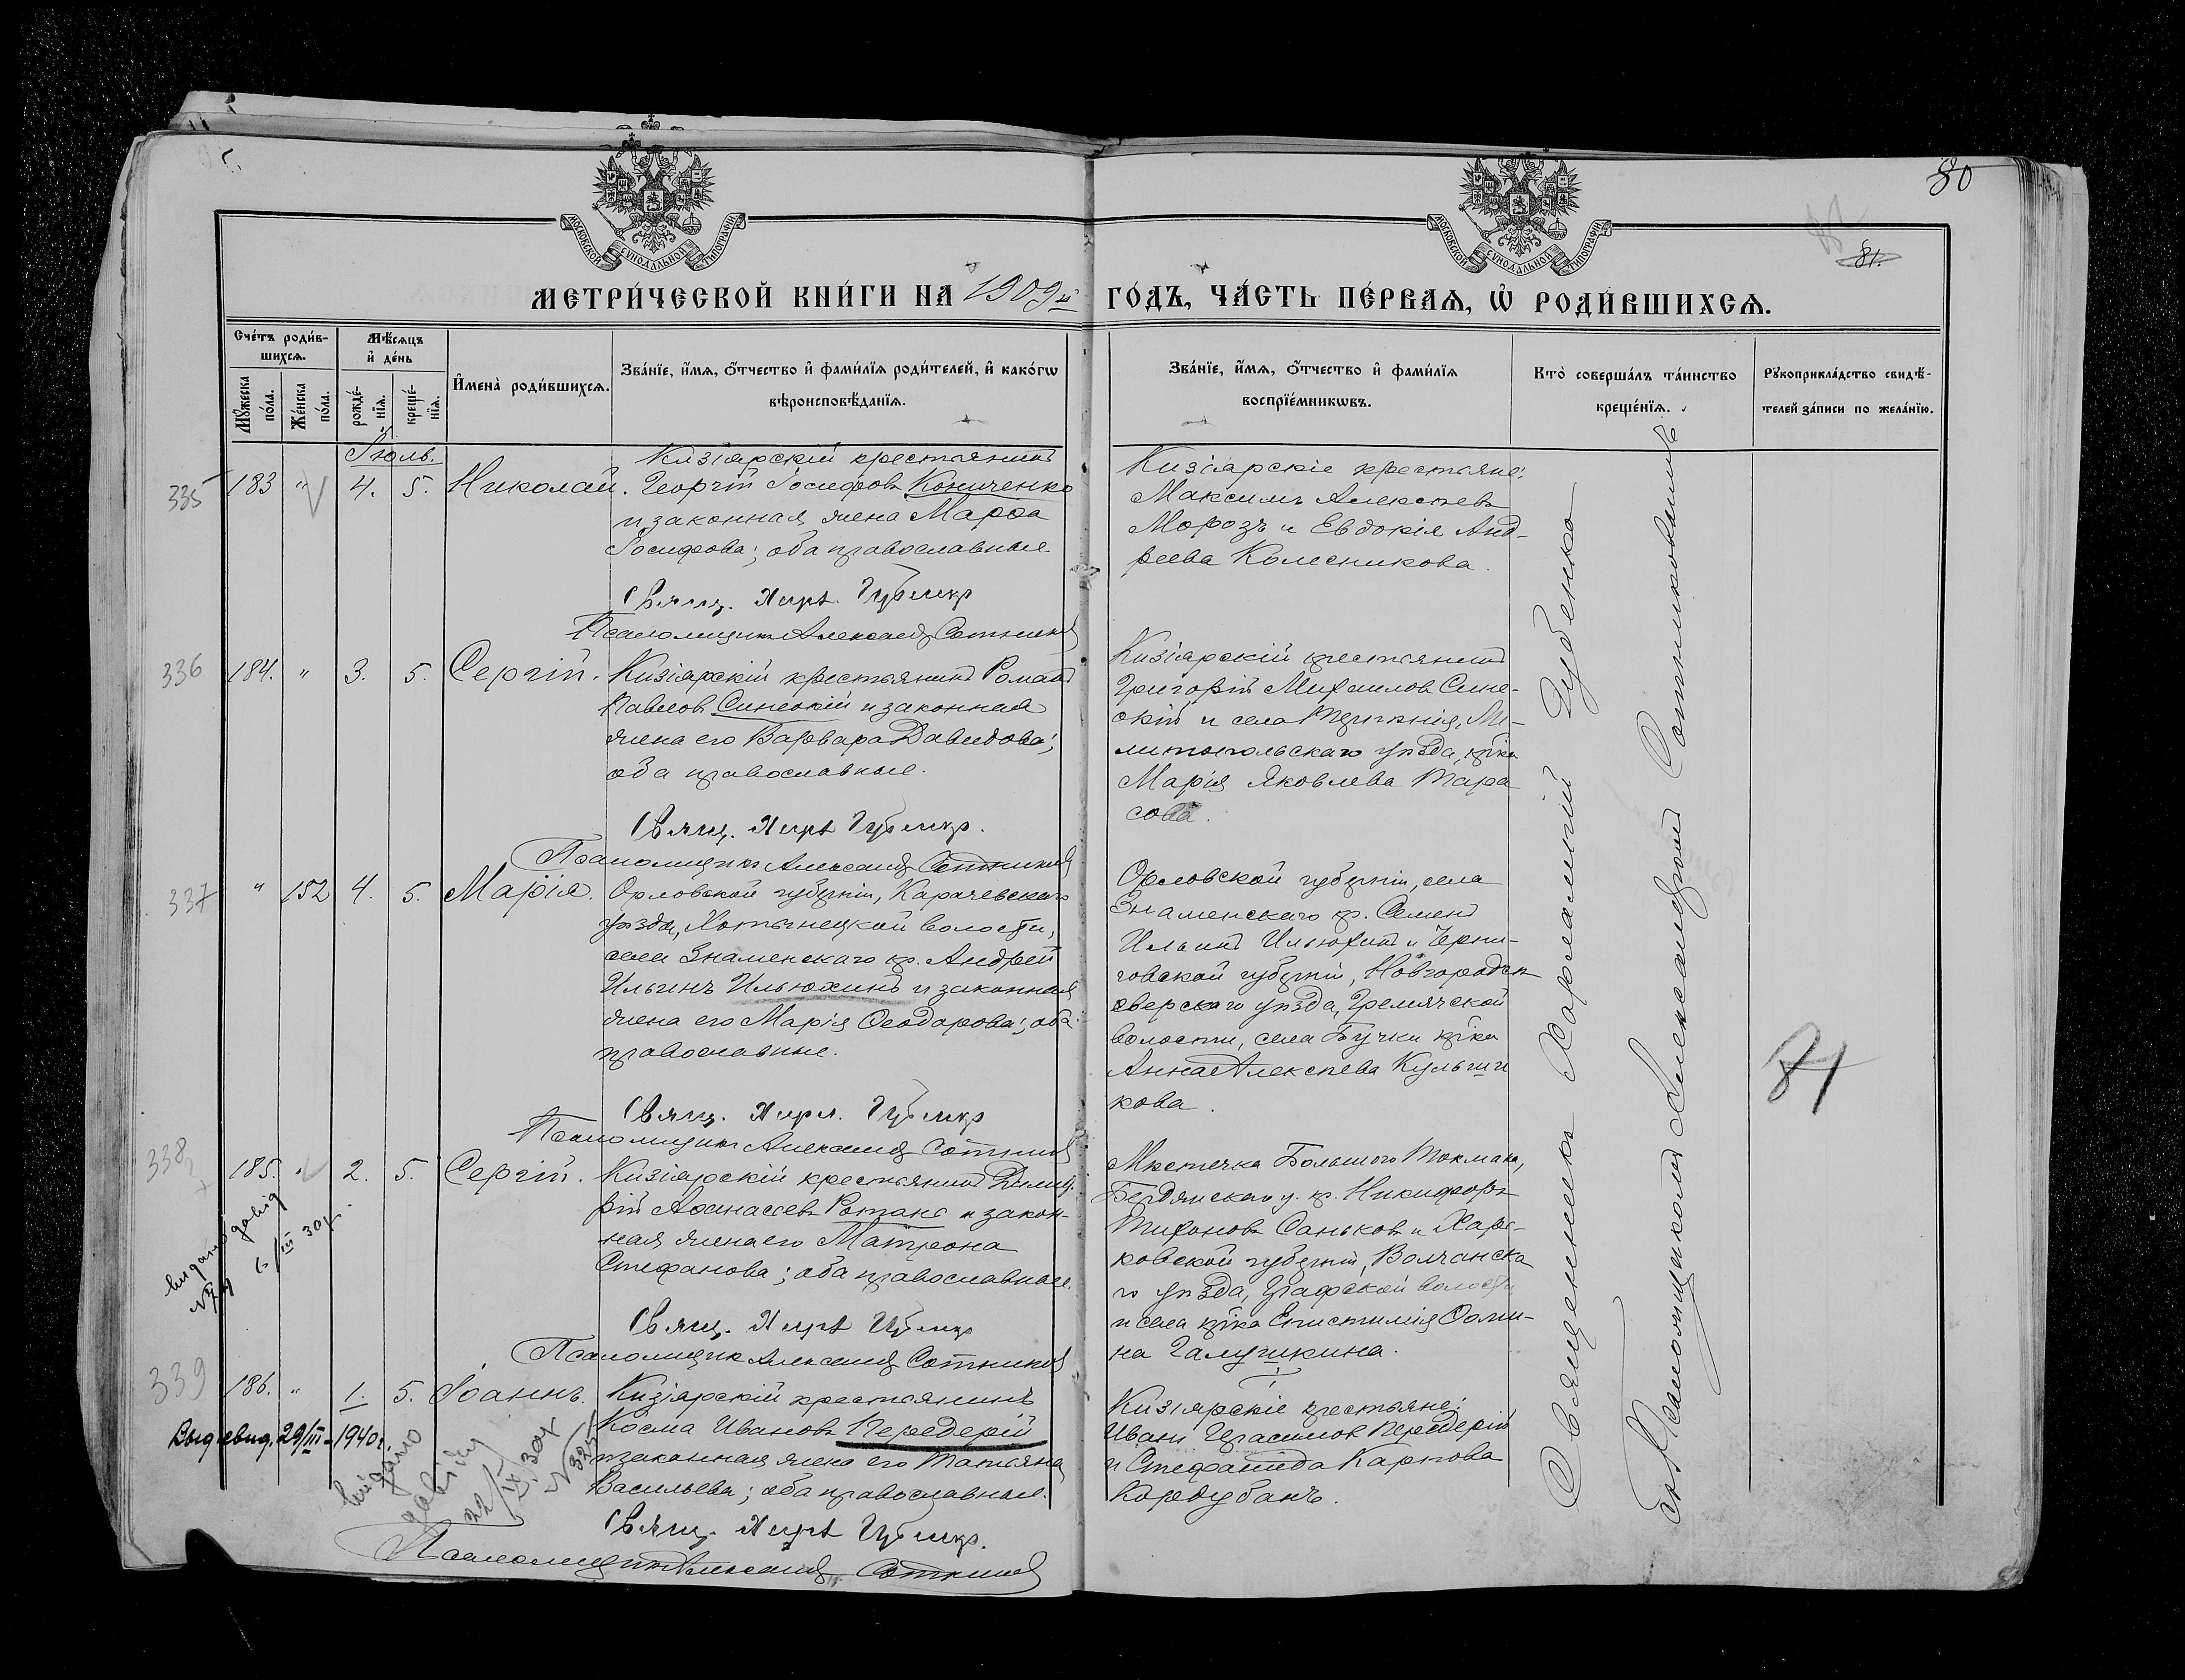 80
81.
МОСКОВСКОЙ СѴНОДАЛЬНОЙ ТИПОГРАФІИ
МОСКОВСКОЙ СѴНОДАЛЬНОЙ ТИПОГРАФІИ
МЕТРИ́ЧЕСКОЙ КНИ́ГИ НА 1909й ГО́ДЪ, ЧА́СТЬ ПЕ́РВАѦ, Ѡ҆ РОДИ́ВШИХСѦ.
Сче́тъ роди́в-
шихсѧ.
Мꙋ́жеска по́ла.
Же́нска по́ла.
Мѣ́сѧцъ
и҆ де́нь
рожде́-
нїѧ.
креще́-
нїѧ.
И҆мена̀ роди́вшихсѧ.
Зва́нїе, и҆́мѧ, ѻ҆́тчество и҆ фами́лїѧ роди́телей, и҆ како́гѡ
вѣроисповѣ́данїѧ.
Зва́нїе, и҆́мѧ, ѻ҆́тчество и҆ фами́лїѧ
воспрїе́мникѡвъ.
Кто̀ соверша́лъ та́инство
креще́нїѧ.
Рꙋкоприкла́дство свидѣ́-
телей за́писи по жела́нїю.
Іюль.
335 183 " 4. 5. Николай.
Кизіярскій крестьянинъ
Георгій Іосифовъ Кониченко
и законная жена Марѳа
Іосифова; оба православные.
Свящ. Харл. Дубенко
Псаломщикъ Александръ Сотников
Кизіярскіе крестьяне:
Максимъ Алексѣевъ
Морозъ и Евдокія Анд-
реева Колесникова.
336 184. " 3. 5. Сергій.
Кизіярскій крестьянинъ Романъ
Павловъ Синеокій и законная
жена его Варвара Давидова;
оба православные.
Свящ. Харл. Дубенко.
Псаломщикъ Александръ Сотников
Кизіярскій крестьянинъ
Григорій Михаиловъ Сине-
окій и села Терпѣнія, Ме-
литопольскаго уѣзда, кр-ка
Марія Яковлева Тара
сова.
337 " 152 4. 5. Марія.
Орловской губерніи, Карачевскаго
уѣзда, Хотынецкой волости,
села Знаменскаго кр. Андрей
Ильинъ Ильюхинъ и законная
жена его Марія Ѳеодорова; оба
православные.
Свящ. Харл. Дубенко
Псаломщикъ Александръ Сотников
Орловской губерніи, села
Знаменскаго кр. Семенъ
Ильинъ Ильюхинъ и Черни-
говской губерніи, Новгородъ
сверскаго уѣзда, Гремячской
волости, села Бучки кр-ка
Анна Алексѣева Кульши
кова.
338 185. " 2. 5. Сергій.
Кизіярскій крестьянинъ Димит-
рій Аѳанасіевъ Ротань и закон-
ная жена его Матрона
Стефанова; оба православные.
Свящ. Харл. Дубенко
Псаломщикъ Александръ Сотников
Мѣстечка Большого Токмака,
Бердянскаго у. кр. Никифоръ
Тихоновъ Саньковъ и Харь-
ковской губерніи, Волчанска
го уѣзда, Графской волости
и села кр-ка Епистимія Ѳоми-
на Галушкина.
видано довід
6/III 30 р.
339 186. " 1. 5. Іоаннъ.
Кизіярскій крестьянинъ
Косма Ивановъ Передерій
и законная жена его Татьяна
Васильева; оба православные.
Свящ. Харл. Дубенко.
Псаломщикъ Александръ Сотников
Кизіярскіе крестьяне:
Иванъ Герасимовъ Передерій
и Стефанида Карпова
Кордубанъ.
Выд. свид. 29/III-1940 г.
видано
довідку
22/IX 30 р.
Священникъ Харлампій Дубенко
съ Псаломщикомъ Александромъ Сотниковымъ
81